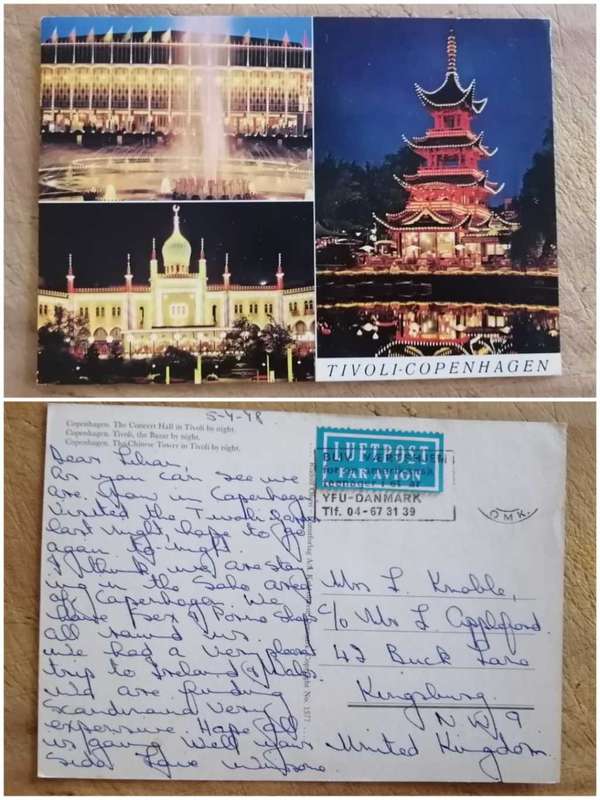 TIVOLI-COPENHAGEN
5-4-78
Copenhagen. The Concert Hall in Tivoli by night.
Copenhagen. Tivoli, the Bazar by night.
Copenhagen. The Chinese Tower in Tivoli by night.
Dear Lilian,
As you can see we
are now in Copenhagen
visited the Tivoli
last night, hope to go
again to-night.
I think we are stay
ing in the Soho area
of Copenhagen. We
have sex & Porno shops
all round us.
We had a very pleasant
trip to Ireland &
We are finding
Scandinavia very
expensive. Hope all
is going well your
side. Love
LUFTPOST
PAR AVION
BLIV VÆRTSHJEM
YFU-DANMARK
Tlf. 04-67 31 39
OMK.
Mrs L. Knoble,
c/o Mrs L. Appleford.
42 Buck Lane
Kingsbury.
N W 9.
United Kingdom.